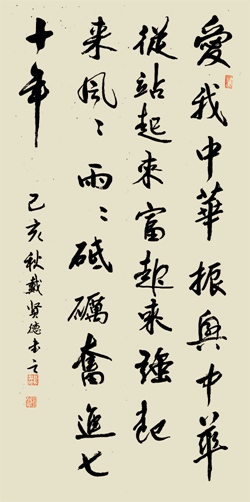 愛我中華振興中華
從站起來富起來强起
来風〻雨〻砥礪奮進七
十年
己亥秋戴贤德书之